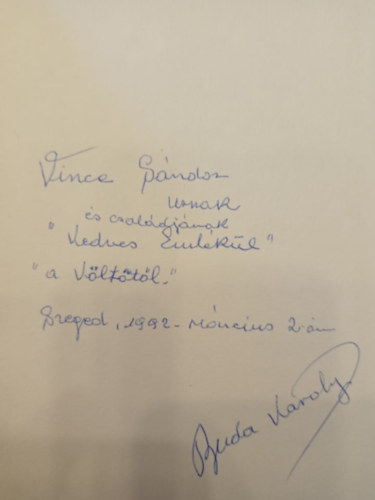 Vince Sándor
Urnak
és családjának
"Kedves Emlékül"
"a Költőtől."
Szeged, 1992. Március 2-án
Buda Károly